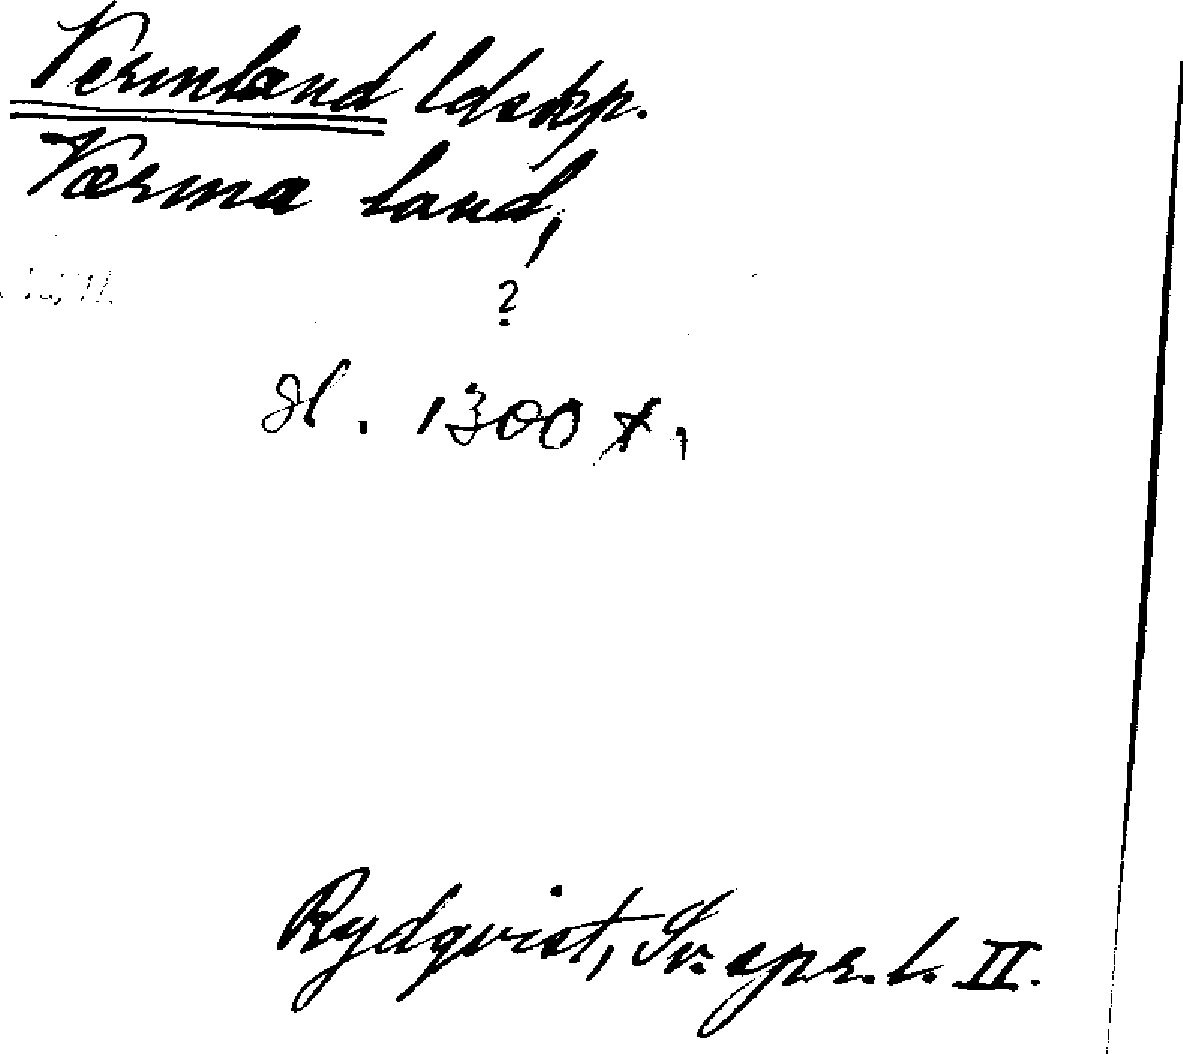 Vermland ldskp.
Værma land,
?
sl. 1300 t.,
Rydqvist, Sv. spr. l. II.